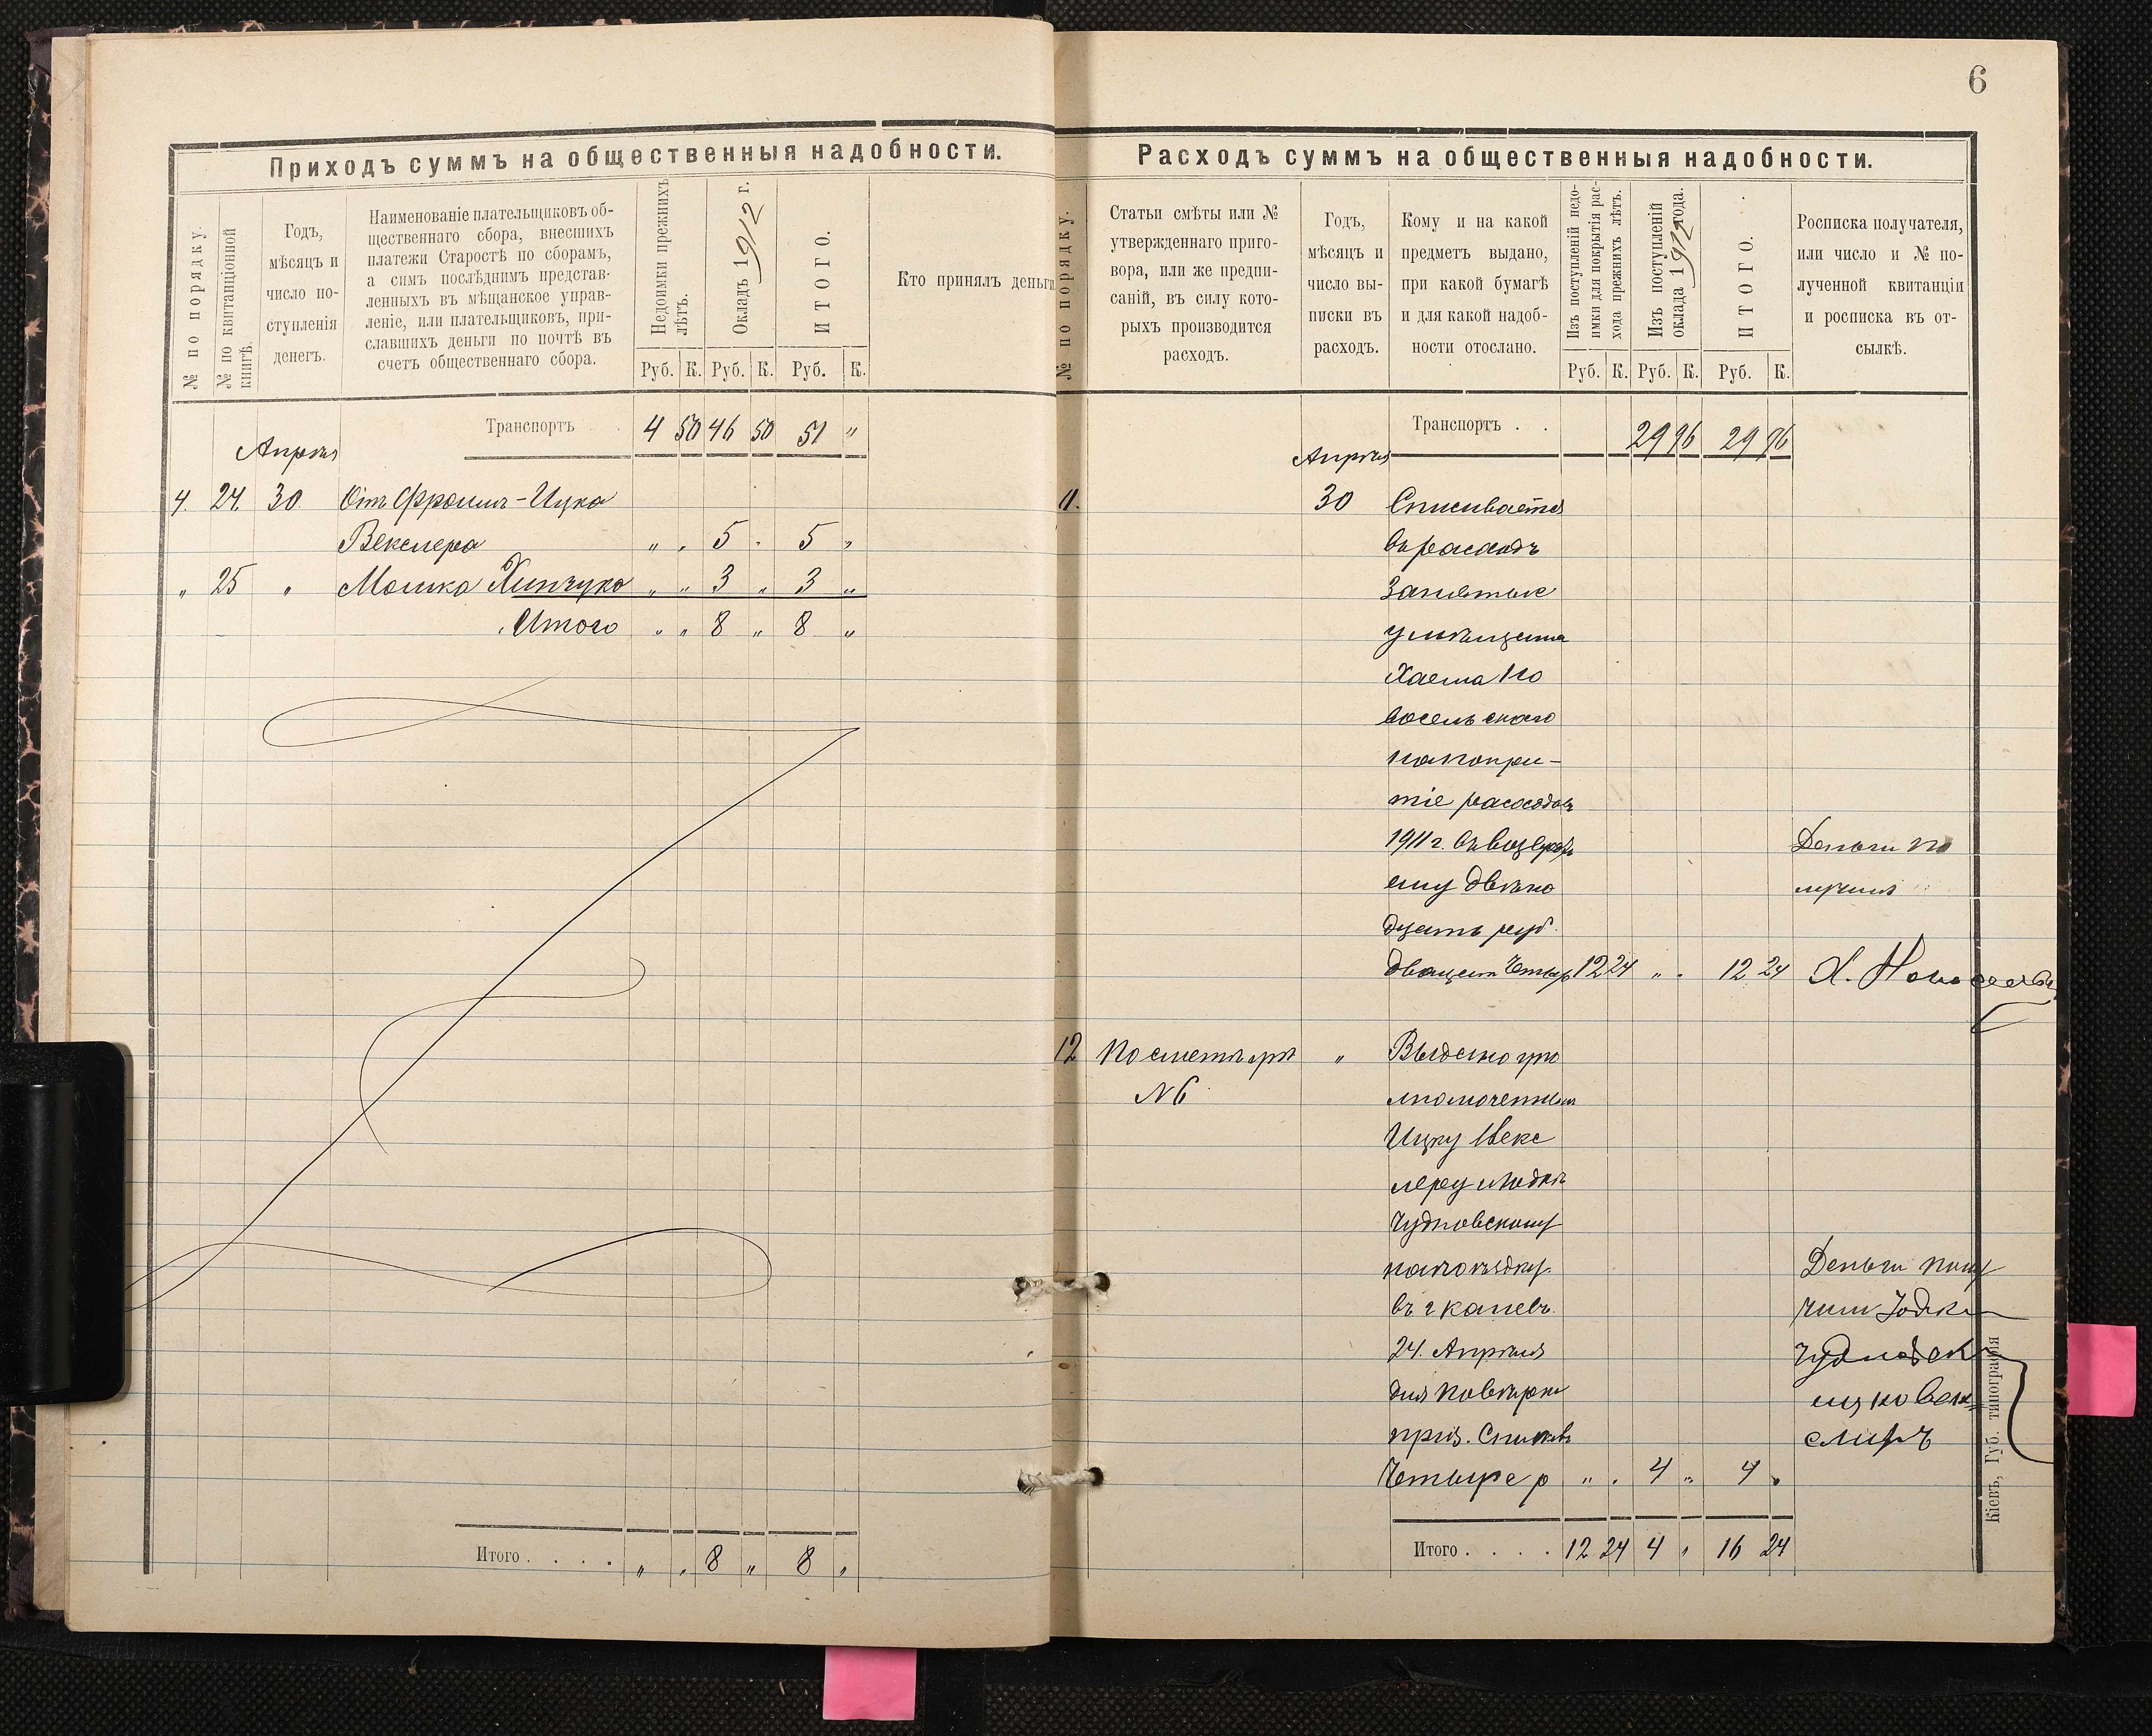 6
Приходъ суммъ на общественныя надобности.
№ по порядку.
№ по квитанціонной
книгѣ.
Годъ,
мѣсяцъ и
число по-
ступленія
денегъ.
Наименованіе плательщиковъ об-
щественнаго сбора, внесшихъ
платежи Старостѣ по сборамъ,
а симъ послѣднимъ представ-
ленныхъ въ мѣщанское управ-
леніе, или плательщиковъ, при-
славшихъ деньги по почтѣ въ
счетъ общественнаго сбора.
Недоимки прежнихъ
лѣтъ.
Окладъ 1912 г.
ИТОГО.
Кто принялъ деньги
Руб. К. Руб. К. Руб. К.
Транспортъ . . 4 50 46 50 51 "
Апрѣля
4. 24. 30. Отъ Фроима-Ицка
Векслера " " 5 " 5 "
" 25 " Мошка Хинчука " " 3 " 3 "
Итого " " 8 " 8 "
Итого . . . . " " 8 " 8 "
Расходъ суммъ на общественныя надобности.
№ по порядку.
Статьи смѣты или №
утвержденнаго приго-
вора, или же предпи-
саній, въ силу кото-
рыхъ производится
расходъ.
Годъ,
мѣсяцъ и
число вы-
писки въ
расходъ.
Кому и на какой
предметъ выдано,
при какой бумагѣ
и для какой надоб-
ности отослано.
Изъ поступленій недо-
имки для покрытія рас-
хода прежнихъ лѣтъ.
Изъ поступленій
оклада 1912 года.
ИТОГО.
Росписка получателя,
или число и № по-
лученной квитанціи
и росписка въ от-
сылкѣ.
Руб. К. Руб. К. Руб. К.
Транспортъ . . 29 96 29 96
Апрѣля
11. 30 Списывается
въ расходъ
Занятые
у мѣщанина
Хаима Но
восельскаго
на покры-
тіе расходовъ
1911 г. въ возвратъ
ему двѣна
дцать руб.
двадцать четыр 12 24 " " 12 24
Деньги по
лучилъ
Х. Новосельск
12 По смѣтѣ ст
№ 6
" Выдано упо
лномоченнымъ
Ицку Векс
леру и Іодкѣ
Чудновскому
на поѣздку
въ г Каневъ
24. Апрѣля
для повѣрки
приз. Списковъ
Четыре р " " 4 " 4 "
Деньги полу
чили Іодка
Чудновск
ицко Век
слиръ
Итого . . . . 12 24 4 " 16 24
Кіевъ, Губ. типографія